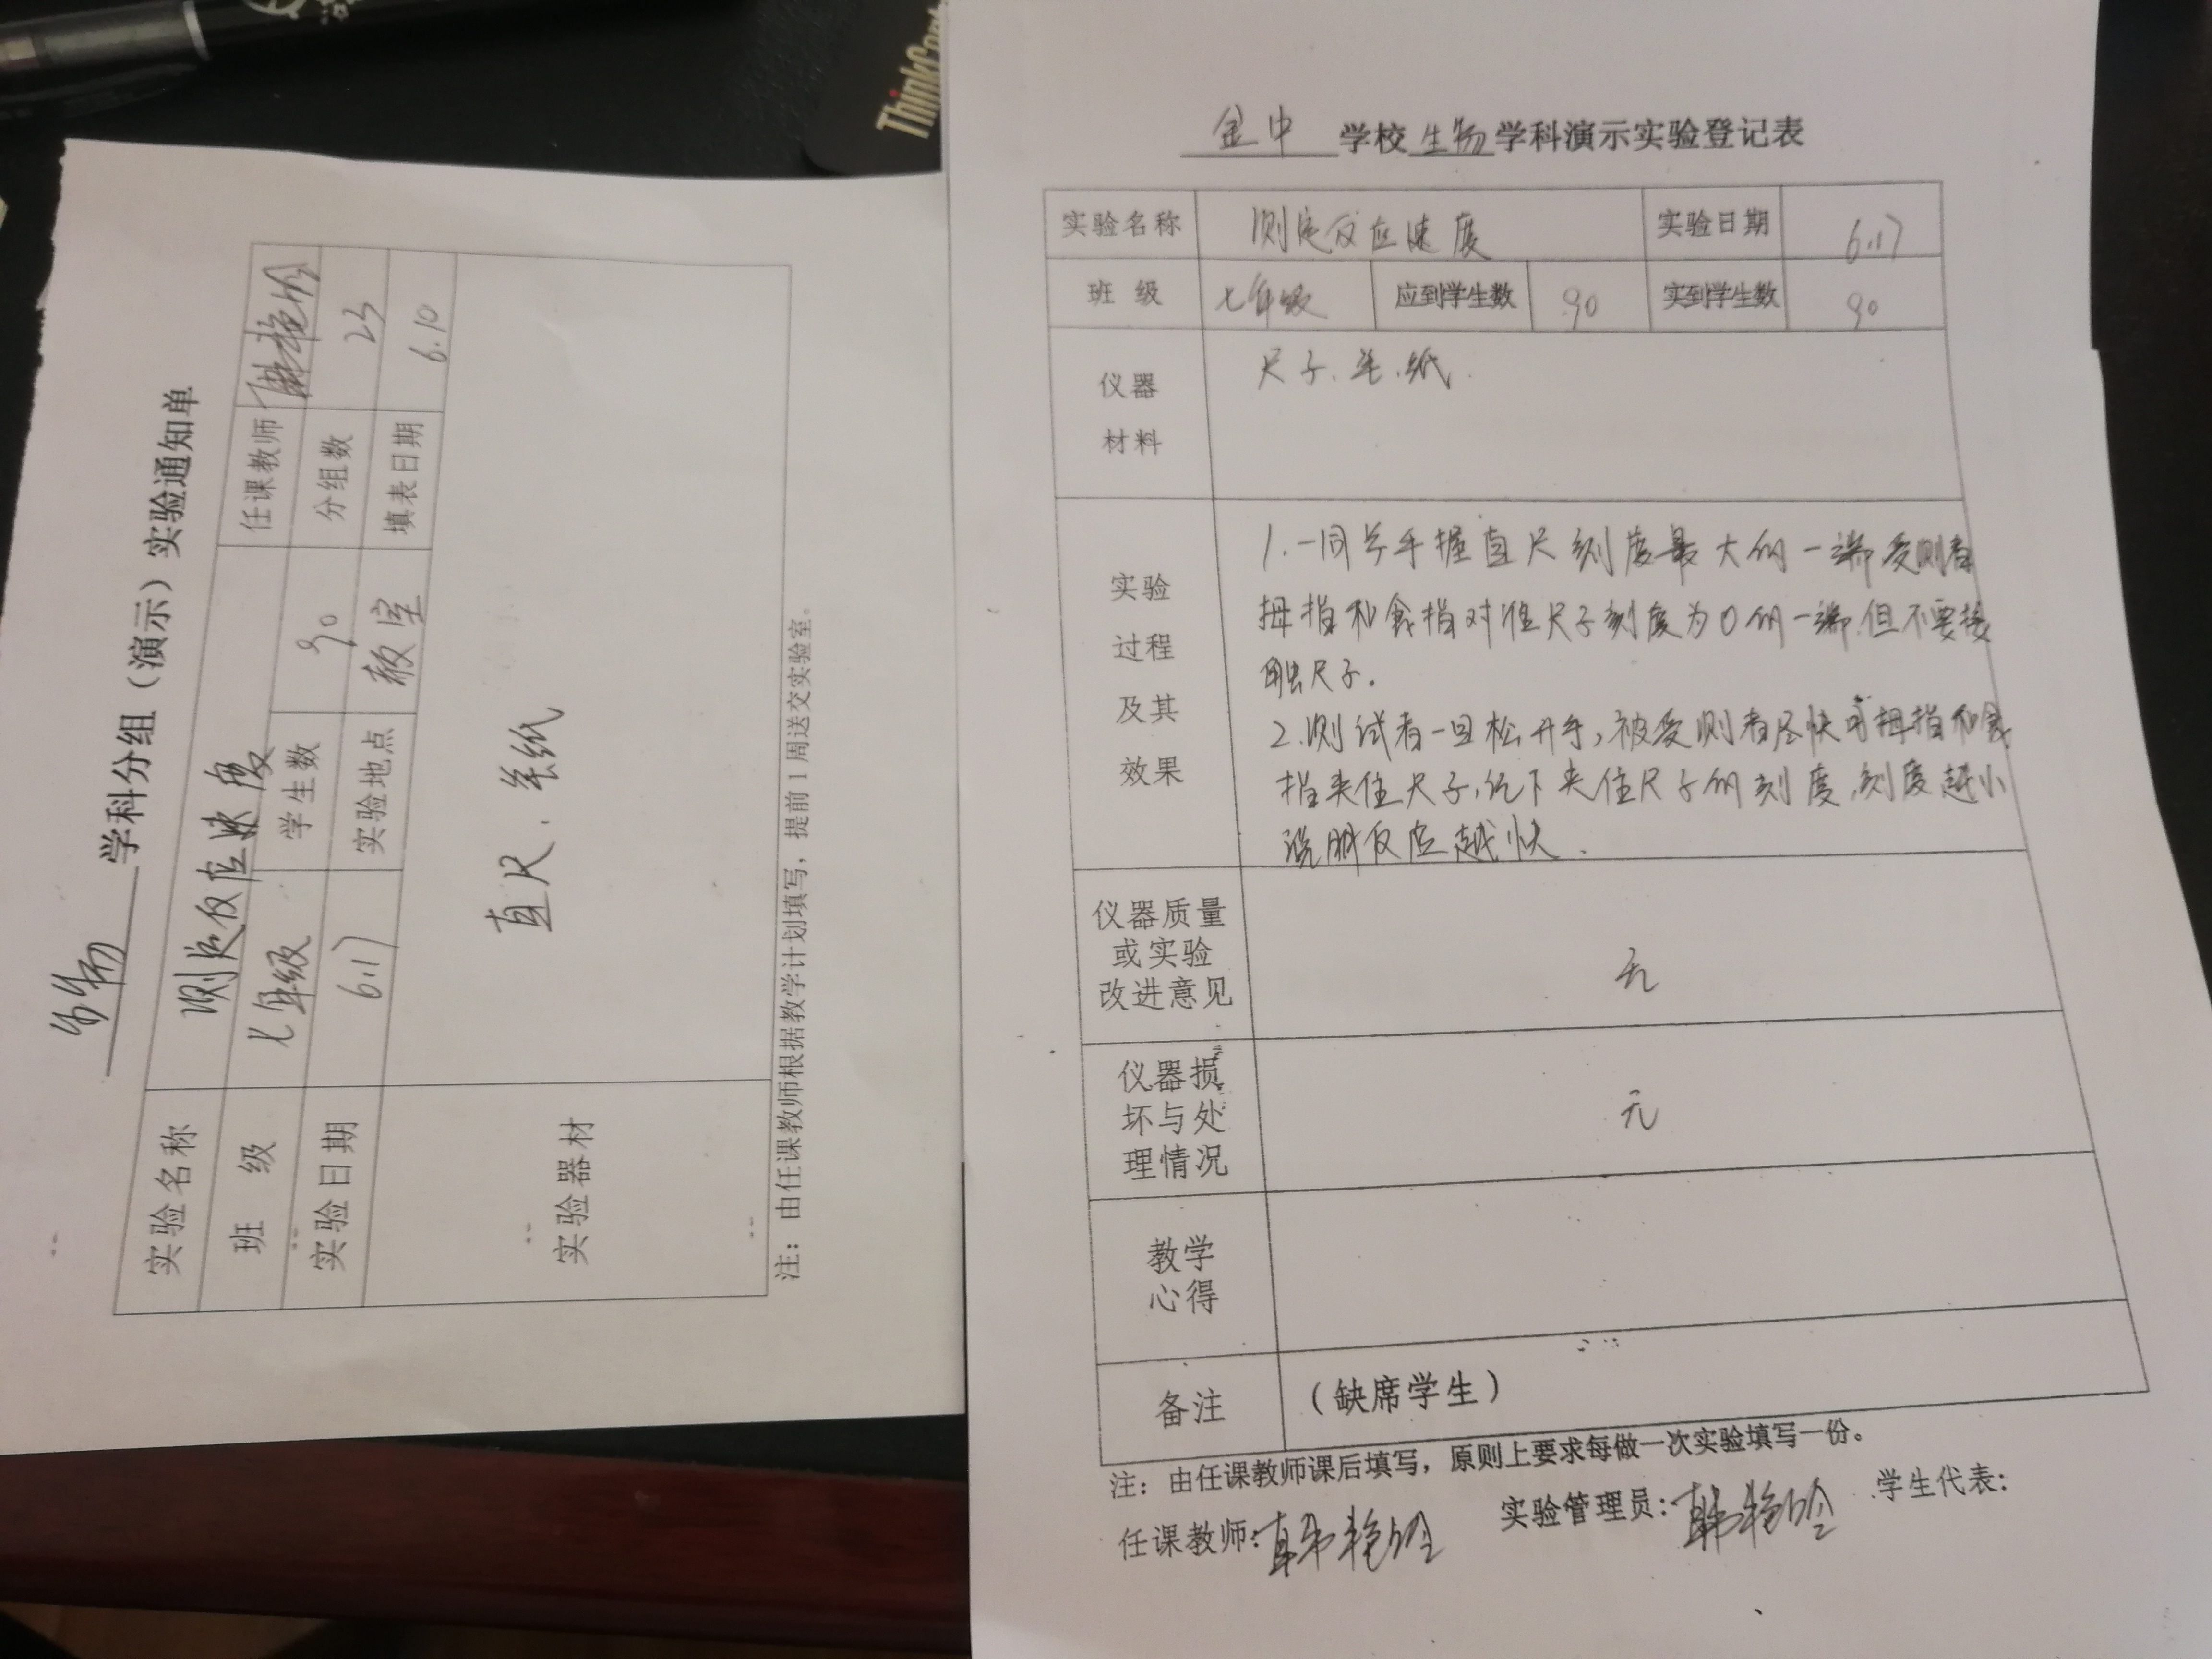 ThinkCent
生物 学科分组（演示）实验通知单
实验名称 测定反应速度 任课教师
班 级 七年级 学生数 90 分组数 23
实验日期 6.17 实验地点 教室 填表日期 6.10
实验器材 直尺、笔纸
注：由任课教师根据教学计划填写，提前1周送交实验室。
金中 学校 生物 学科演示实验登记表
实验名称 测定反应速度 实验日期 6.17
班 级 七年级 应到学生数 90 实到学生数 90
仪器
材料
尺子、笔、纸
实验
过程
及其
效果
1.一同学手握直尺刻度最大的一端受测者
拇指和食指对准尺子刻度为0的一端.但不要接
触尺子.
2.测试者一旦松开手,被受测者尽快用拇指和食
指夹住尺子,记下夹住尺子的刻度,刻度越小
说明反应越快.
仪器质量
或实验
改进意见
无
仪器损
坏与处
理情况
无
教学
心得
备注 （缺席学生）
注：由任课教师课后填写，原则上要求每做一次实验填写一份。
任课教师: 实验管理员: 学生代表: